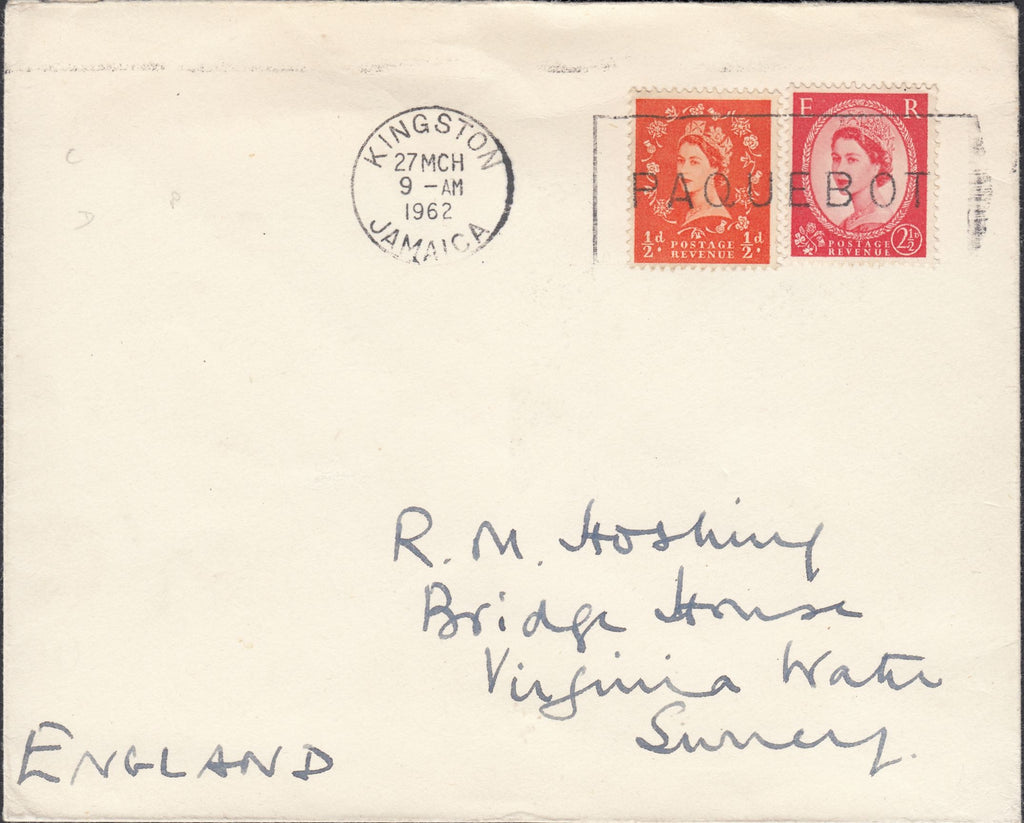 KINGSTON
27 MCH
9 - AM
1962
JAMAICA
PAQUEBOT
½d. POSTAGE REVENUE ½d.
E R
POSTAGE REVENUE 2½d
C
P
D
R. M. Hosking
Bridge House
Virginia Water
Surrey.
ENGLAND